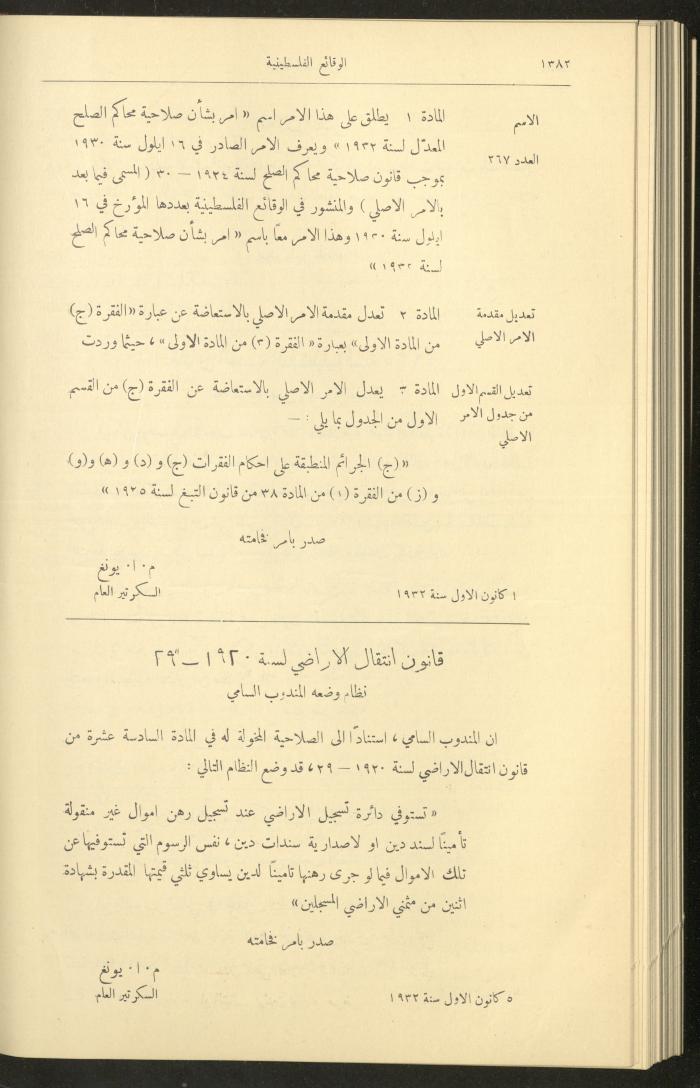 ١٣٨٢
الوقائع الفلسطينية
الاسم
العدد ٢٦٧
المادة ١ يطلق على هذا الامر اسم « امر بشأن صلاحية محاكم الصلح
المعدّل لسنة ١٩٣٢ » ويعرف الامر الصادر في ١٦ ايلول سنة ١٩٣٠
بموجب قانون صلاحية محاكم الصلح لسنة ١٩٢٤ — ٣٠ ( المسمى فيما بعد
بالامر الاصلي ) والمنشور في الوقائع الفلسطينية بعددها المؤرخ في ١٦
ايلول سنة ١٩٣٠ وهذا الامر معًا باسم « امر بشأن صلاحية محاكم الصلح
لسنة ١٩٣٢ »
تعديل مقدمة
الامر الاصلي
المادة ٢ تعدل مقدمة الامر الاصلي بالاستعاضة عن عبارة « الفقرة (ج)
من المادة الاولى » بعبارة « الفقرة (٣) من المادة الاولى » ، حيثما وردت
تعديل القسم الاول
من جدول الامر
الاصلي
المادة ٣ يعدل الامر الاصلي بالاستعاضة عن الفقرة (ج) من القسم
الاول من الجدول بما يلي : —
« (ج) الجرائم المنطبقة على احكام الفقرات (ج) و (د) و (ه) و (و)
و (ز) من الفقرة (١) من المادة ٣٨ من قانون التبغ لسنة ١٩٢٥ »
صدر بامر فخامته
م . ا . يونغ
السكرتير العام
١ كانون الاول سنة ١٩٣٢
قانون انتقال الاراضي لسنة ١٩٢٠ — ٢٩
نظام وضعه المندوب السامي
ان المندوب السامي ، استنادًا الى الصلاحية المخولة له في المادة السادسة عشرة من
قانون انتقال الاراضي لسنة ١٩٢٠ — ٢٩ ، قد وضع النظام التالي :
« تستوفي دائرة تسجيل الاراضي عند تسجيل رهن اموال غير منقولة
تأمينًا لسند دين او لاصدارية سندات دين ، نفس الرسوم التي تستوفيها عن
تلك الاموال فيما لو جرى رهنها تامينًا لدين يساوي ثلثي قيمتها المقدرة بشهادة
اثنين من مثمني الاراضي المسجلين »
صدر بامر فخامته
م . ا . يونغ
السكرتير العام
٥ كانون الاول سنة ١٩٣٢